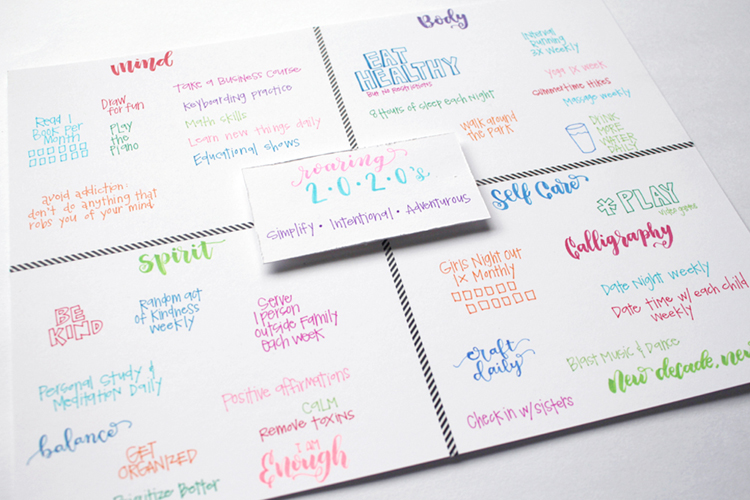 mind
Take a Business Course
Draw
for fun
Keyboarding practice
Read 1
Book Per
Month
Play
the
Piano
Math skills
Learn new things daily
Educational shows
avoid addiction:
don't do anything that
robs you of your mind
Body
EAT
HEALTHY
But no restrictions
8 Hours of sleep each Night
Interval
Running
3x Weekly
Yoga 1x week
Summertime Hikes
Massage weekly
walk around
the park
DRINK
MORE
WATER
DAILY
roaring
2.0.2.0's
Simplify • Intentional • Adventurous
Spirit
BE
KIND
Random act
of Kindness
weekly
Serve
1 person
outside Family
each week
Personal Study &
Meditation Daily
Positive affirmations
CALM
Remove toxins
balance
GET
ORGANIZED
I AM
Enough
Prioritize Better
Self Care
* PLAY
Video games
Calligraphy
Girls Night out
1x Monthly
Date Night weekly
Date time w/ each child
weekly
craft
daily
Blast Music & Dance
New decade, new
Check in w/ sisters